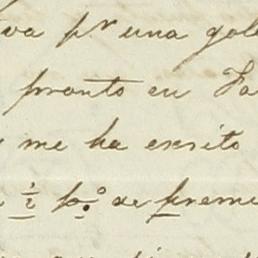 va pr una gol
pronto en Ja
me ha escrito
1/2 p.o de premi